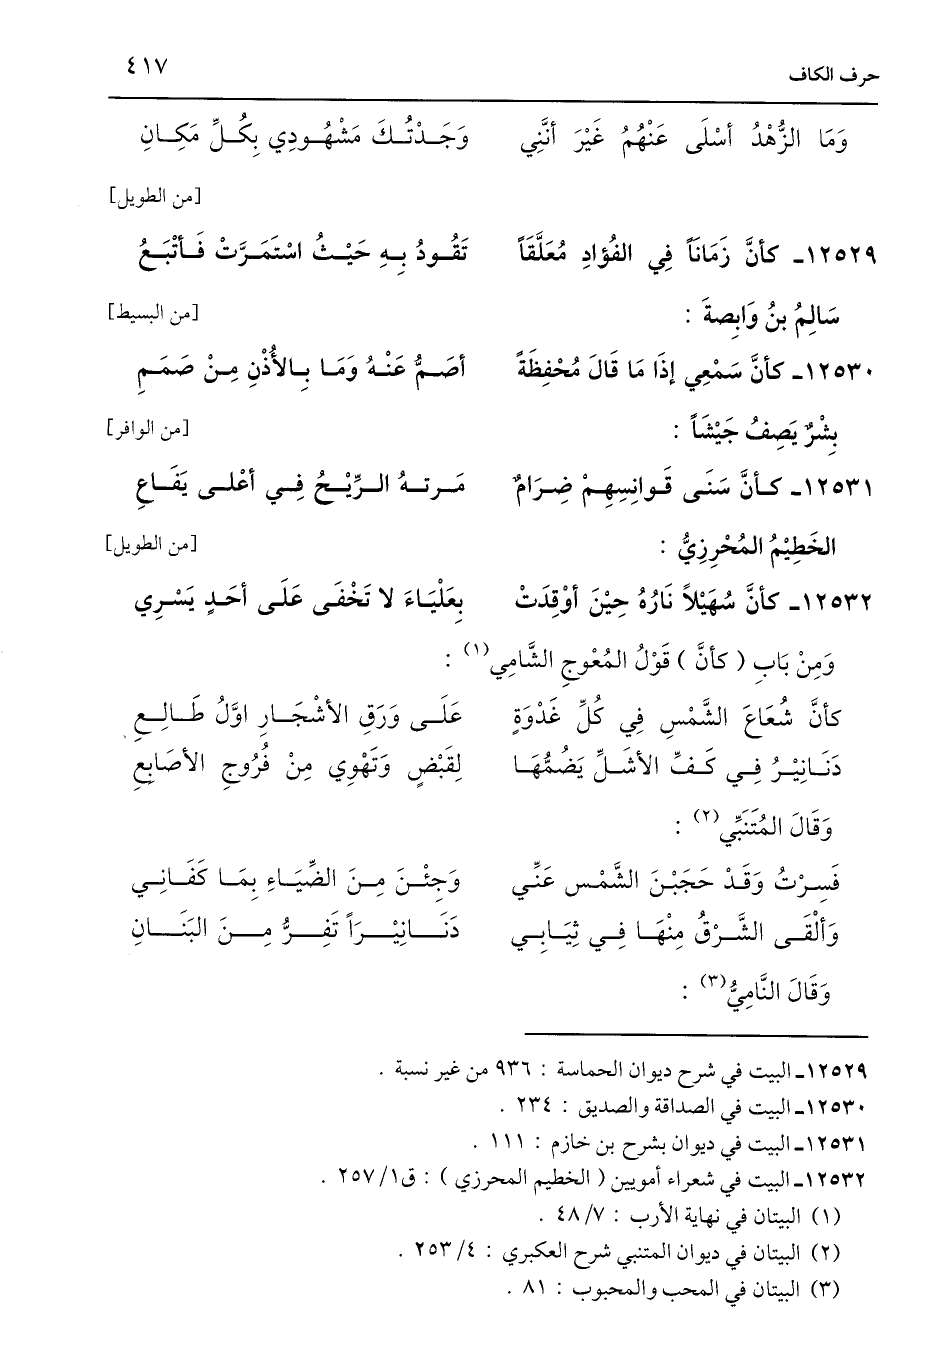 حرف الكاف ٤١٧
وَمَا الزُّهْدُ أسْلَى عَنْهُمُ غَيْرَ أنَّنِي وَجَدْتُكَ مَشْهُودِي بِكُلِّ مَكَانِ
[من الطويل]
١٢٥٢٩ـ كأنَّ زَمَانَاً فِي الفُؤَادِ مُعَلَّقَاً تَقُودُ بِهِ حَيْثُ اسْتَمَرَّتْ فَأتْبَعُ
سَالِمُ بنُ وَابِصةَ : [من البسيط]
١٢٥٣٠ـ كأنَّ سَمْعِي إذَا مَا قَالَ مُحْفِظَةً أصَمُّ عَنْهُ وَمَا بِالأُذْنِ مِنْ صَمَمِ
بِشْرٌ يَصِفُ جَيْشَاً : [من الوافر]
١٢٥٣١ـ كأنَّ سَنَى قَوانِسِهِمْ ضِرَامٌ مَرتهُ الرِّيْحُ فِي أعْلى يَفَاعِ
الخَطِيْمُ المُحْرِزِيُّ : [من الطويل]
١٢٥٣٢ـ كأنَّ سُهَيْلاً نَارُهُ حِيْنَ أوْقِدَتْ بِعَلْيَاءَ لا تَخْفَى عَلَى أحَدٍ يَسْرِي
وَمِنْ بَابِ ( كأنَّ ) قَوْلُ المُعْوجِ الشَّامِي(١) :
كأنَّ شُعَاعَ الشَّمْسِ فِي كُلِّ غَدْوَةٍ عَلَى وَرَقِ الأشْجَارِ اوَّلُ طَالِعِ
دَنَانِيْرُ فِي كَفِّ الأشَلِّ يَضُمُّهَا لِقَبْضٍ وَتَهْوِي مِنْ فُرُوجِ الأصَابِعِ
وَقَالَ المُتَنَبِّي(٢) :
فَسِرْتُ وَقَدْ حَجَبْنَ الشَّمْسَ عَنِّي وَجِئْنَ مِنَ الضِّيَاءِ بِمَا كَفَانِي
وَألْقَى الشَّرْقُ مِنْهَا فِي ثِيَابِي دَنَانِيْرَاً تَفِرُّ مِنَ البَنَانِ
وَقَالَ النَّامِيُّ(٣) :
١٢٥٢٩ـ البيت في شرح ديوان الحماسة : ٩٣٦ من غير نسبة .
١٢٥٣٠ـ البيت في الصداقة والصديق : ٢٣٤ .
١٢٥٣١ـ البيت في ديوان بشرح بن خازم : ١١١ .
١٢٥٣٢ـ البيت في شعراء أمويين ( الخطيم المحرزي ) : ق١/ ٢٥٧ .
(١) البيتان في نهاية الأرب : ٧/ ٤٨ .
(٢) البيتان في ديوان المتنبي شرح العكبري : ٤/ ٢٥٣ .
(٣) البيتان في المحب والمحبوب : ٨١ .